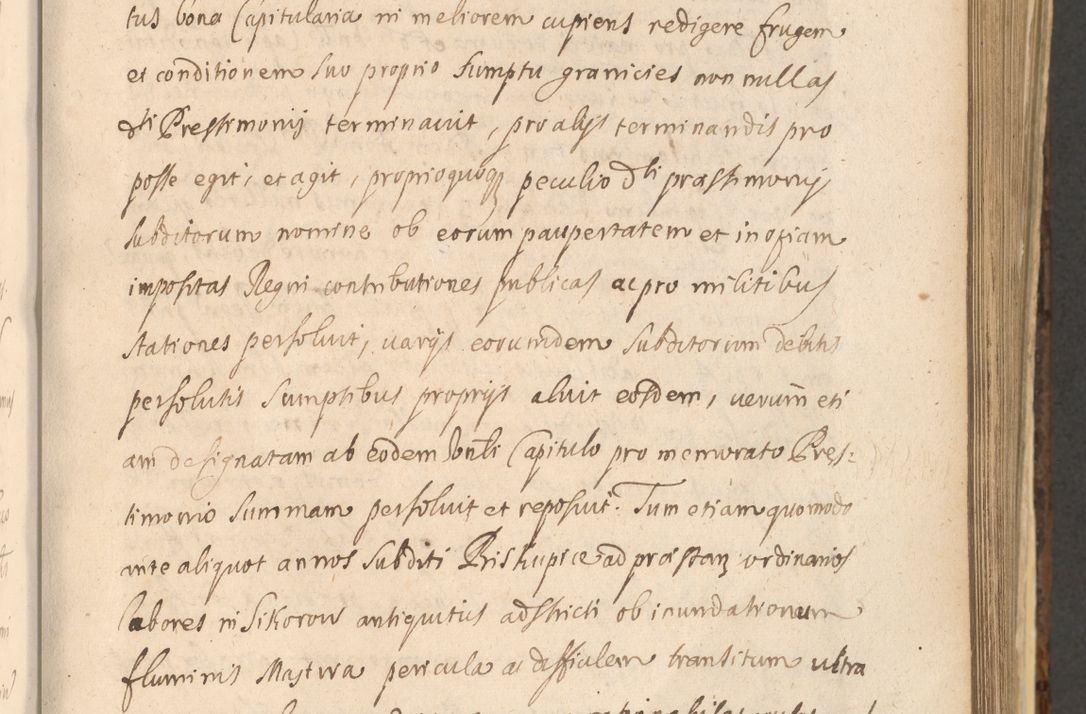 tus bona Capitularia in meliorem cupiens redigere frugem
et conditionem suo proprio sumptu granicies non nullas
dti Prestimonij terminavit, pro alijs terminandis pro
posse egit, et agit, proprioquoq peculio dti præstimonij
subditorum nomine ob eorum paupertatem et inopiam
impositas Regni contributiones publicas ac pro militibus
stationes persoluit, varijs eorumdem subditorum debitis
persolutis sumptibus proprijs aluit eosdem, verum eti
am designatam ab eodem Vnbli Capitulo pro memorato Pres-
timonio summam persoluit et reposuit. Tum etiam quomodo
ante aliquot annos subditi Biskupice ad præstan ordinarios
labores in Sikorow antiquitus adstricti ob inundationum
fluminis Mastwa pericula ac difficilem transitum ultra